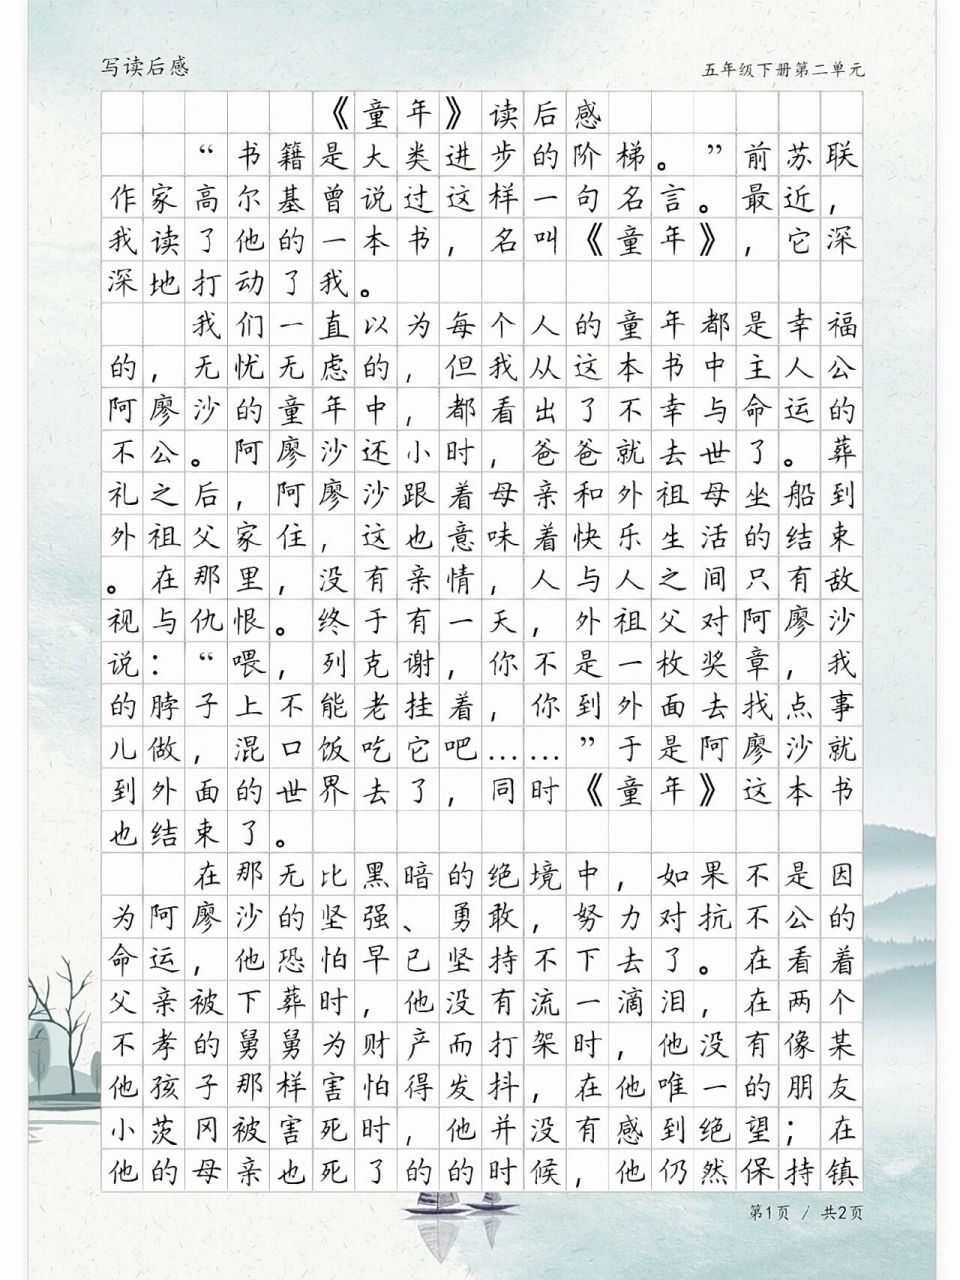 写读后感
五年级下册第二单元
《童年》读后感
“书籍是大类进步的阶梯。”前苏联
作家高尔基曾说过这样一句名言。最近，
我读了他的一本书，名叫《童年》，它深
深地打动了我。
我们一直以为每个人的童年都是幸福
的，无忧无虑的，但我从这本书中主人公
阿廖沙的童年中，都看出了不幸与命运的
不公。阿廖沙还小时，爸爸就去世了。葬
礼之后，阿廖沙跟着母亲和外祖母坐船到
外祖父家住，这也意味着快乐生活的结束
。在那里，没有亲情，人与人之间只有敌
视与仇恨。终于有一天，外祖父对阿廖沙
说：“喂，列克谢，你不是一枚奖章，我
的脖子上不能老挂着，你到外面去找点事
儿做，混口饭吃它吧……”于是阿廖沙就
到外面的世界去了，同时《童年》这本书
也结束了。
在那无比黑暗的绝境中，如果不是因
为阿廖沙的坚强、勇敢，努力对抗不公的
命运，他恐怕早已坚持不下去了。在看着
父亲被下葬时，他没有流一滴泪，在两个
不孝的舅舅为财产而打架时，他没有像某
他孩子那样害怕得发抖，在他唯一的朋友
小茨冈被害死时，他并没有感到绝望；在
他的母亲也死了的的时候，他仍然保持镇
第1页 / 共2页